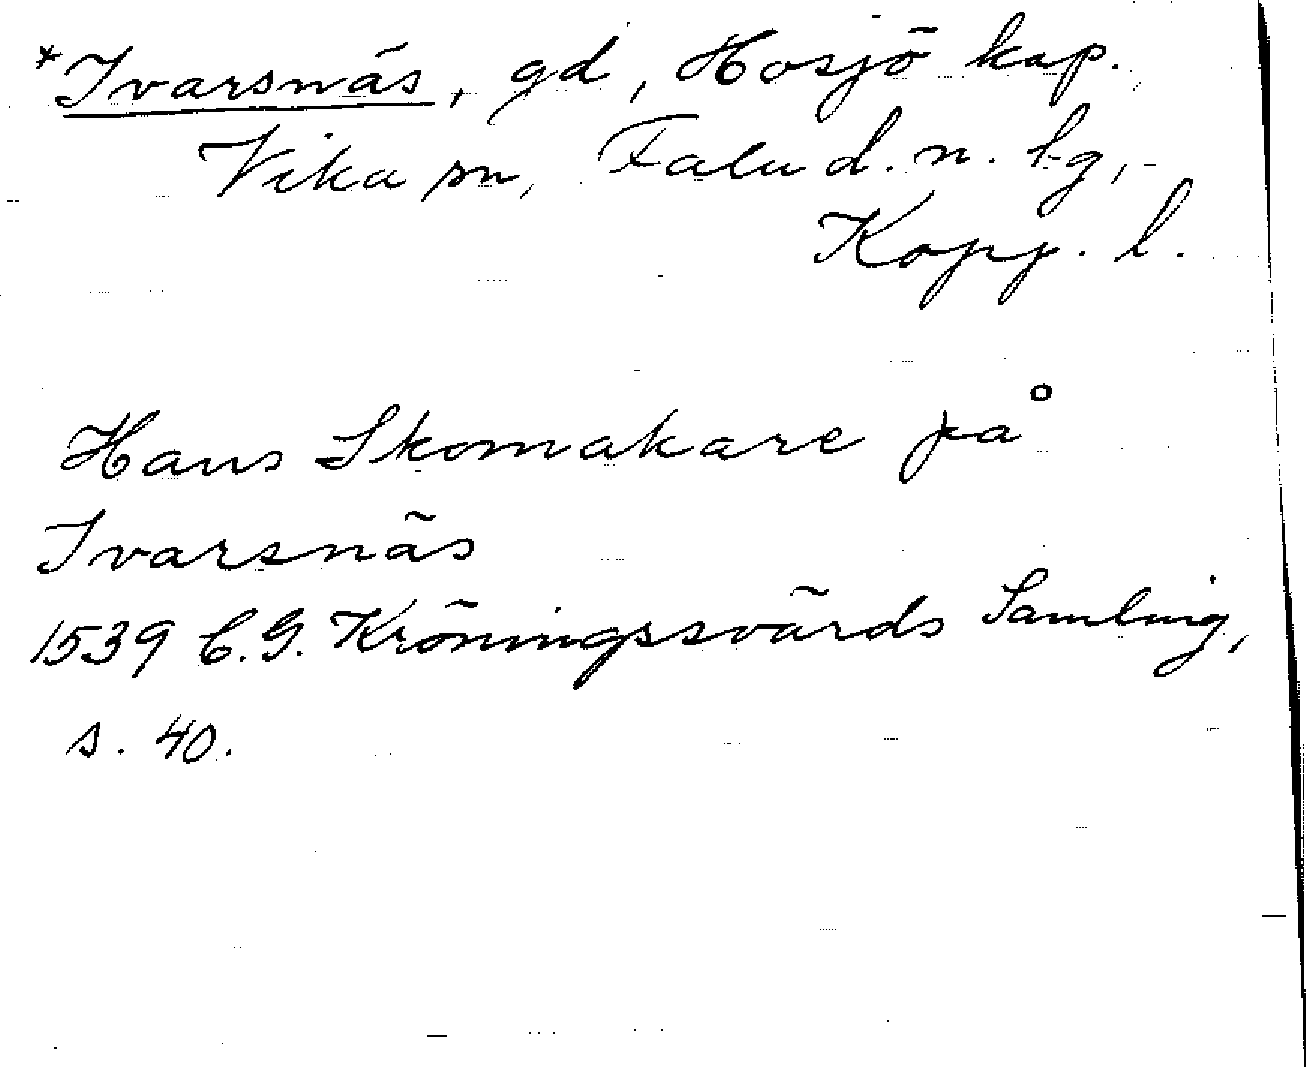 *Ivarsnäs, gd, Hosjö kap.
Vika sn, Falu d. n. lg,
Kopp. l.
Hans Skomakare på
Ivarsnäs
1539 C.G. Kröningssvärds Samling,
s. 40.